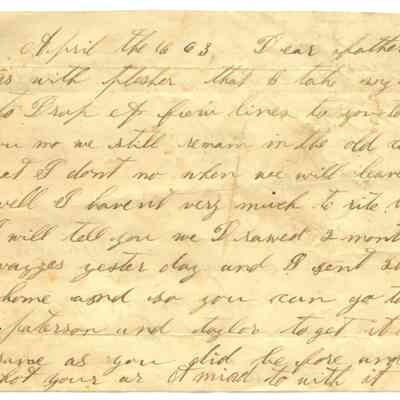 April the 6 63 Dear father
is with plesher that I take my
to Drop A few lines to you to
you no we still remain in the old c
at I dont no when we will leave
well I havent very much to rite
I will tell you we Drawed 2 mont
wages yester day and I sent 20
home and so you can go to
paterson and taylor to get it
same as you did be fore and
what your ar A mind to with it